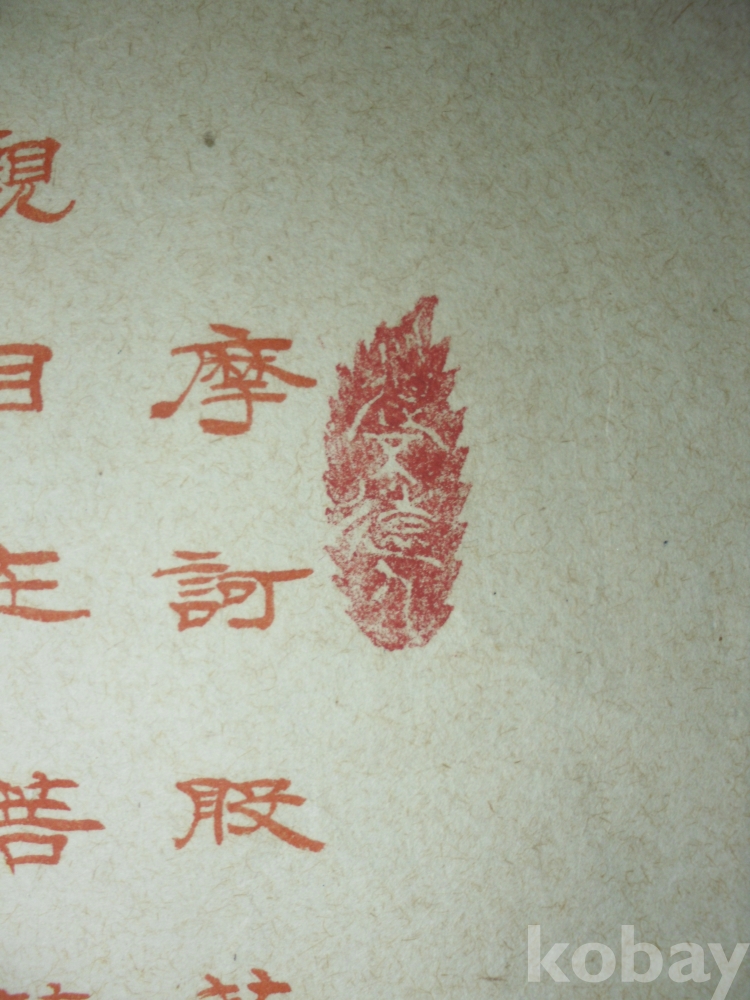 摩訶般
觀自在菩
kobay